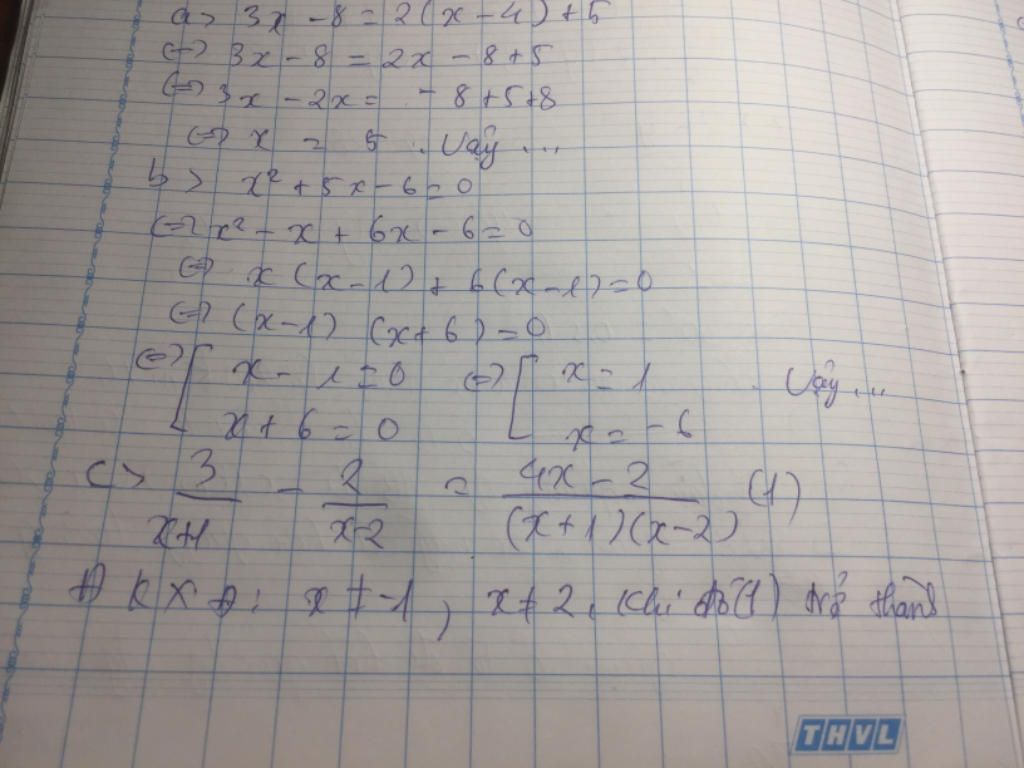 a> 3x - 8 = 2(x - 4) + 5
<=> 3x - 8 = 2x - 8 + 5
<=> 3x - 2x = - 8 + 5 + 8
<=> x = 5 . Vậy ...
b> x² + 5x - 6 = 0
<=> x² - x + 6x - 6 = 0
<=> x (x - 1) + 6 (x - 1) = 0
<=> (x - 1) (x + 6) = 0
<=> [ x - 1 = 0 <=> [ x = 1 . Vậy ...
x + 6 = 0 x = - 6
c> 3/(x+1) - 2/(x-2) = (4x - 2)/((x+1)(x-2)) (1)
ĐKXĐ: x ≠ -1, x ≠ 2. Khi đó (1) trở thành
THVL